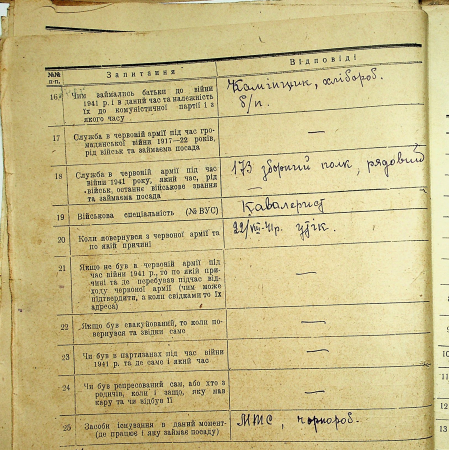 №№ п-п.
Запитання
Відповіді
16
Чим займались батьки до війни
1941 р. і в даний час та належність
їх до комуністичної партії і з
якого часу
Камінщик, хлібороб.
б/п.
17
Служба в червоній армії під час гро-
мадянської війни 1917—22 років,
рід військ та займаема посада
—
18
Служба в червоній армії під час
війни 1941 року, який час, рід
військ, останнє військове звання
та займаема посада
173 зборний полк, рядовий
—
19
Військова спеціальність (№ ВУС)
Кавалерист
20
Коли повернувся з червоної армії та
по якій причині
22/VIII-41р. утік.
21
Якщо не був в червоній армії під
час війни 1941 р., то по якій при-
чині та де перебував підчас від-
ходу червоної армії (чим може
підтвердити, а коли свідками то їх
адреса)
—
22
Якщо був евакуйований, то коли по-
вернувся та звідки саме
—
23
Чи був в партизанах під час війни
1941 р. та де саме і який час
—
24
Чи був репресований сам, або хто з
родичів, коли і защо, яку мав
кару та чи відбув її
—
25
Засоби існування в даний момент
(де працює і яку займає посаду)
МТС, чорнороб.
10
11
12
13